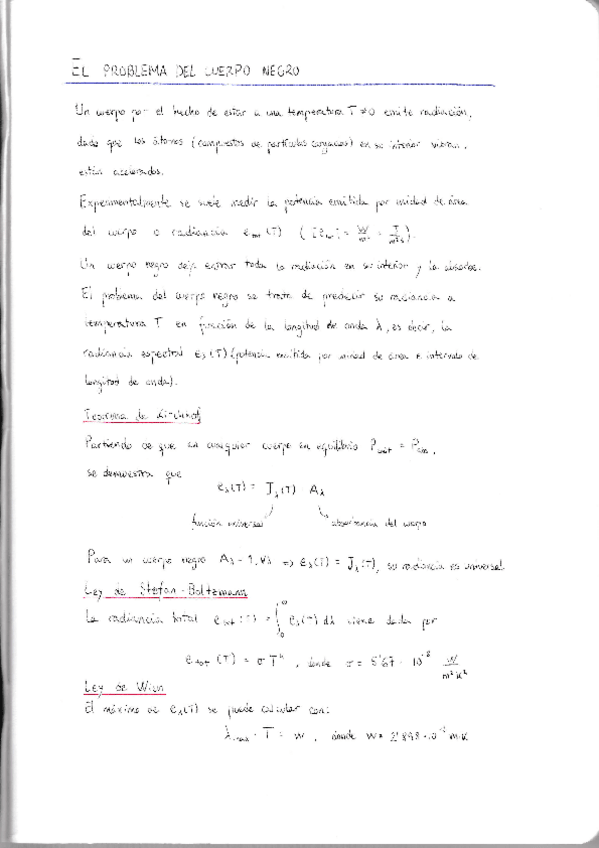 EL PROBLEMA DEL CUERPO NEGRO
Un cuerpo por el hecho de estar a una temperatura T ≠ 0 emite radiación,
dado que los átomos (compuestos de partículas cargadas) en su interior vibran,
están acelerados.
Experimentalmente se suele medir la potencia emitida por unidad de área
del cuerpo o radiancia e_tot (T) ( [e_tot] = W/m² = J/m²s ).
Un cuerpo negro deja entrar toda la radiación en su interior y la absorbe.
El problema del cuerpo negro se trata de predecir su radiancia a
temperatura T en función de la longitud de onda λ, es decir, la
radiancia espectral e_λ(T) (potencia emitida por unidad de área e intervalo de
longitud de onda).
Teorema de Kirchhoff
Partiendo de que en cualquier cuerpo en equilibrio P_abs = P_em,
se demuestra que
e_λ(T) = J_λ(T) A_λ
función universal absorbancia del cuerpo
Para un cuerpo negro A_λ = 1, ∀λ ⇒ e_λ(T) = J_λ(T), su radiancia es universal
Ley de Stefan-Boltzmann
La radiancia total e_tot (T) = ∫₀^∞ e_λ(T) dλ viene dada por
e_tot (T) = σ T⁴, donde σ = 5'67 · 10⁻⁸ W/m²K⁴
Ley de Wien
El máximo de e_λ(T) se puede calcular con:
λ_max · T = w, donde w = 2'898 · 10⁻³ m·K